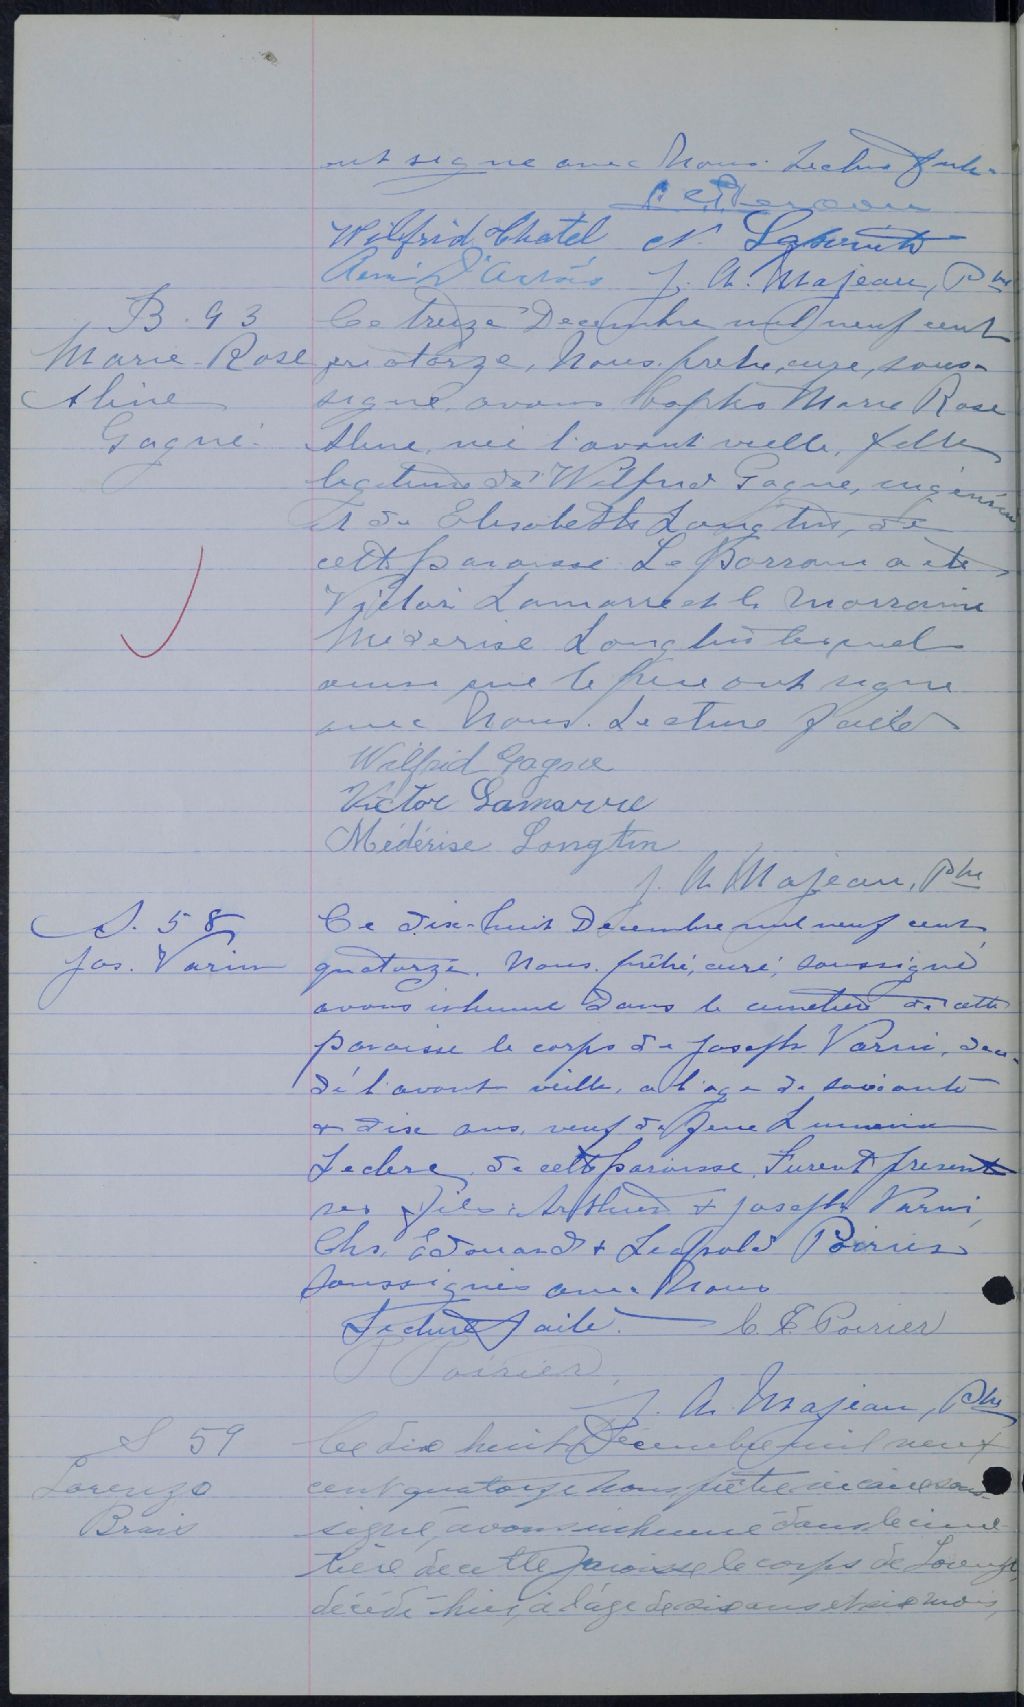 ont signé avec Nous. Lecture faite.
Wilfrid Chatel N.
J. A. Majeau, Ptre
B. 93
Marie-Rose
Aline
Gagné.
Ce treize Decembre mil neuf cent
quatorze, Nous, prêtre, curé, sous-
signé, avons baptisé Marie Rose
Aline, née l'avant veille, fille
legitime de Wilfrid Gagné, ingénieur
et de Elisabeth Longtin, de
cette paroisse. Le Parrain a été
Victor Lamarre et la Marraine
Mederise Longtin lesquels
ainsi que le père ont signé
avec Nous. Lecture faite
Wilfrid Gagné
Victor Lamarre
Médérise Longtin
J. A. Majeau, Ptre
S. 58
Jos. Varin
Ce dix-huit Decembre mil neuf cent
quatorze. Nous, prêtre, curé, soussigné
avons inhumé dans le cimetière de cette
paroisse le corps de Joseph Varin, décé-
dé l'avant veille, a l'age de soixante
& dix ans, veuf de feue
Leclerc, de cette paroisse. Furent present
ses fils: Arthur & Joseph Varin,
Chs. Edouard & Leopold Poirier
soussignés avec Nous
Lecture faite. C. E. Poirier
Poirier,
J. A. Majeau, Ptre
S 59
Lorenzo
Brais
Ce dix huit Décembre mil neuf
cent quatorze nous prêtre vicaire sous-
signé, avons inhumé dans le cime
tière de cette paroisse le corps de Lorenzo,
décédé hier, à l'âge de six ans et six mois,